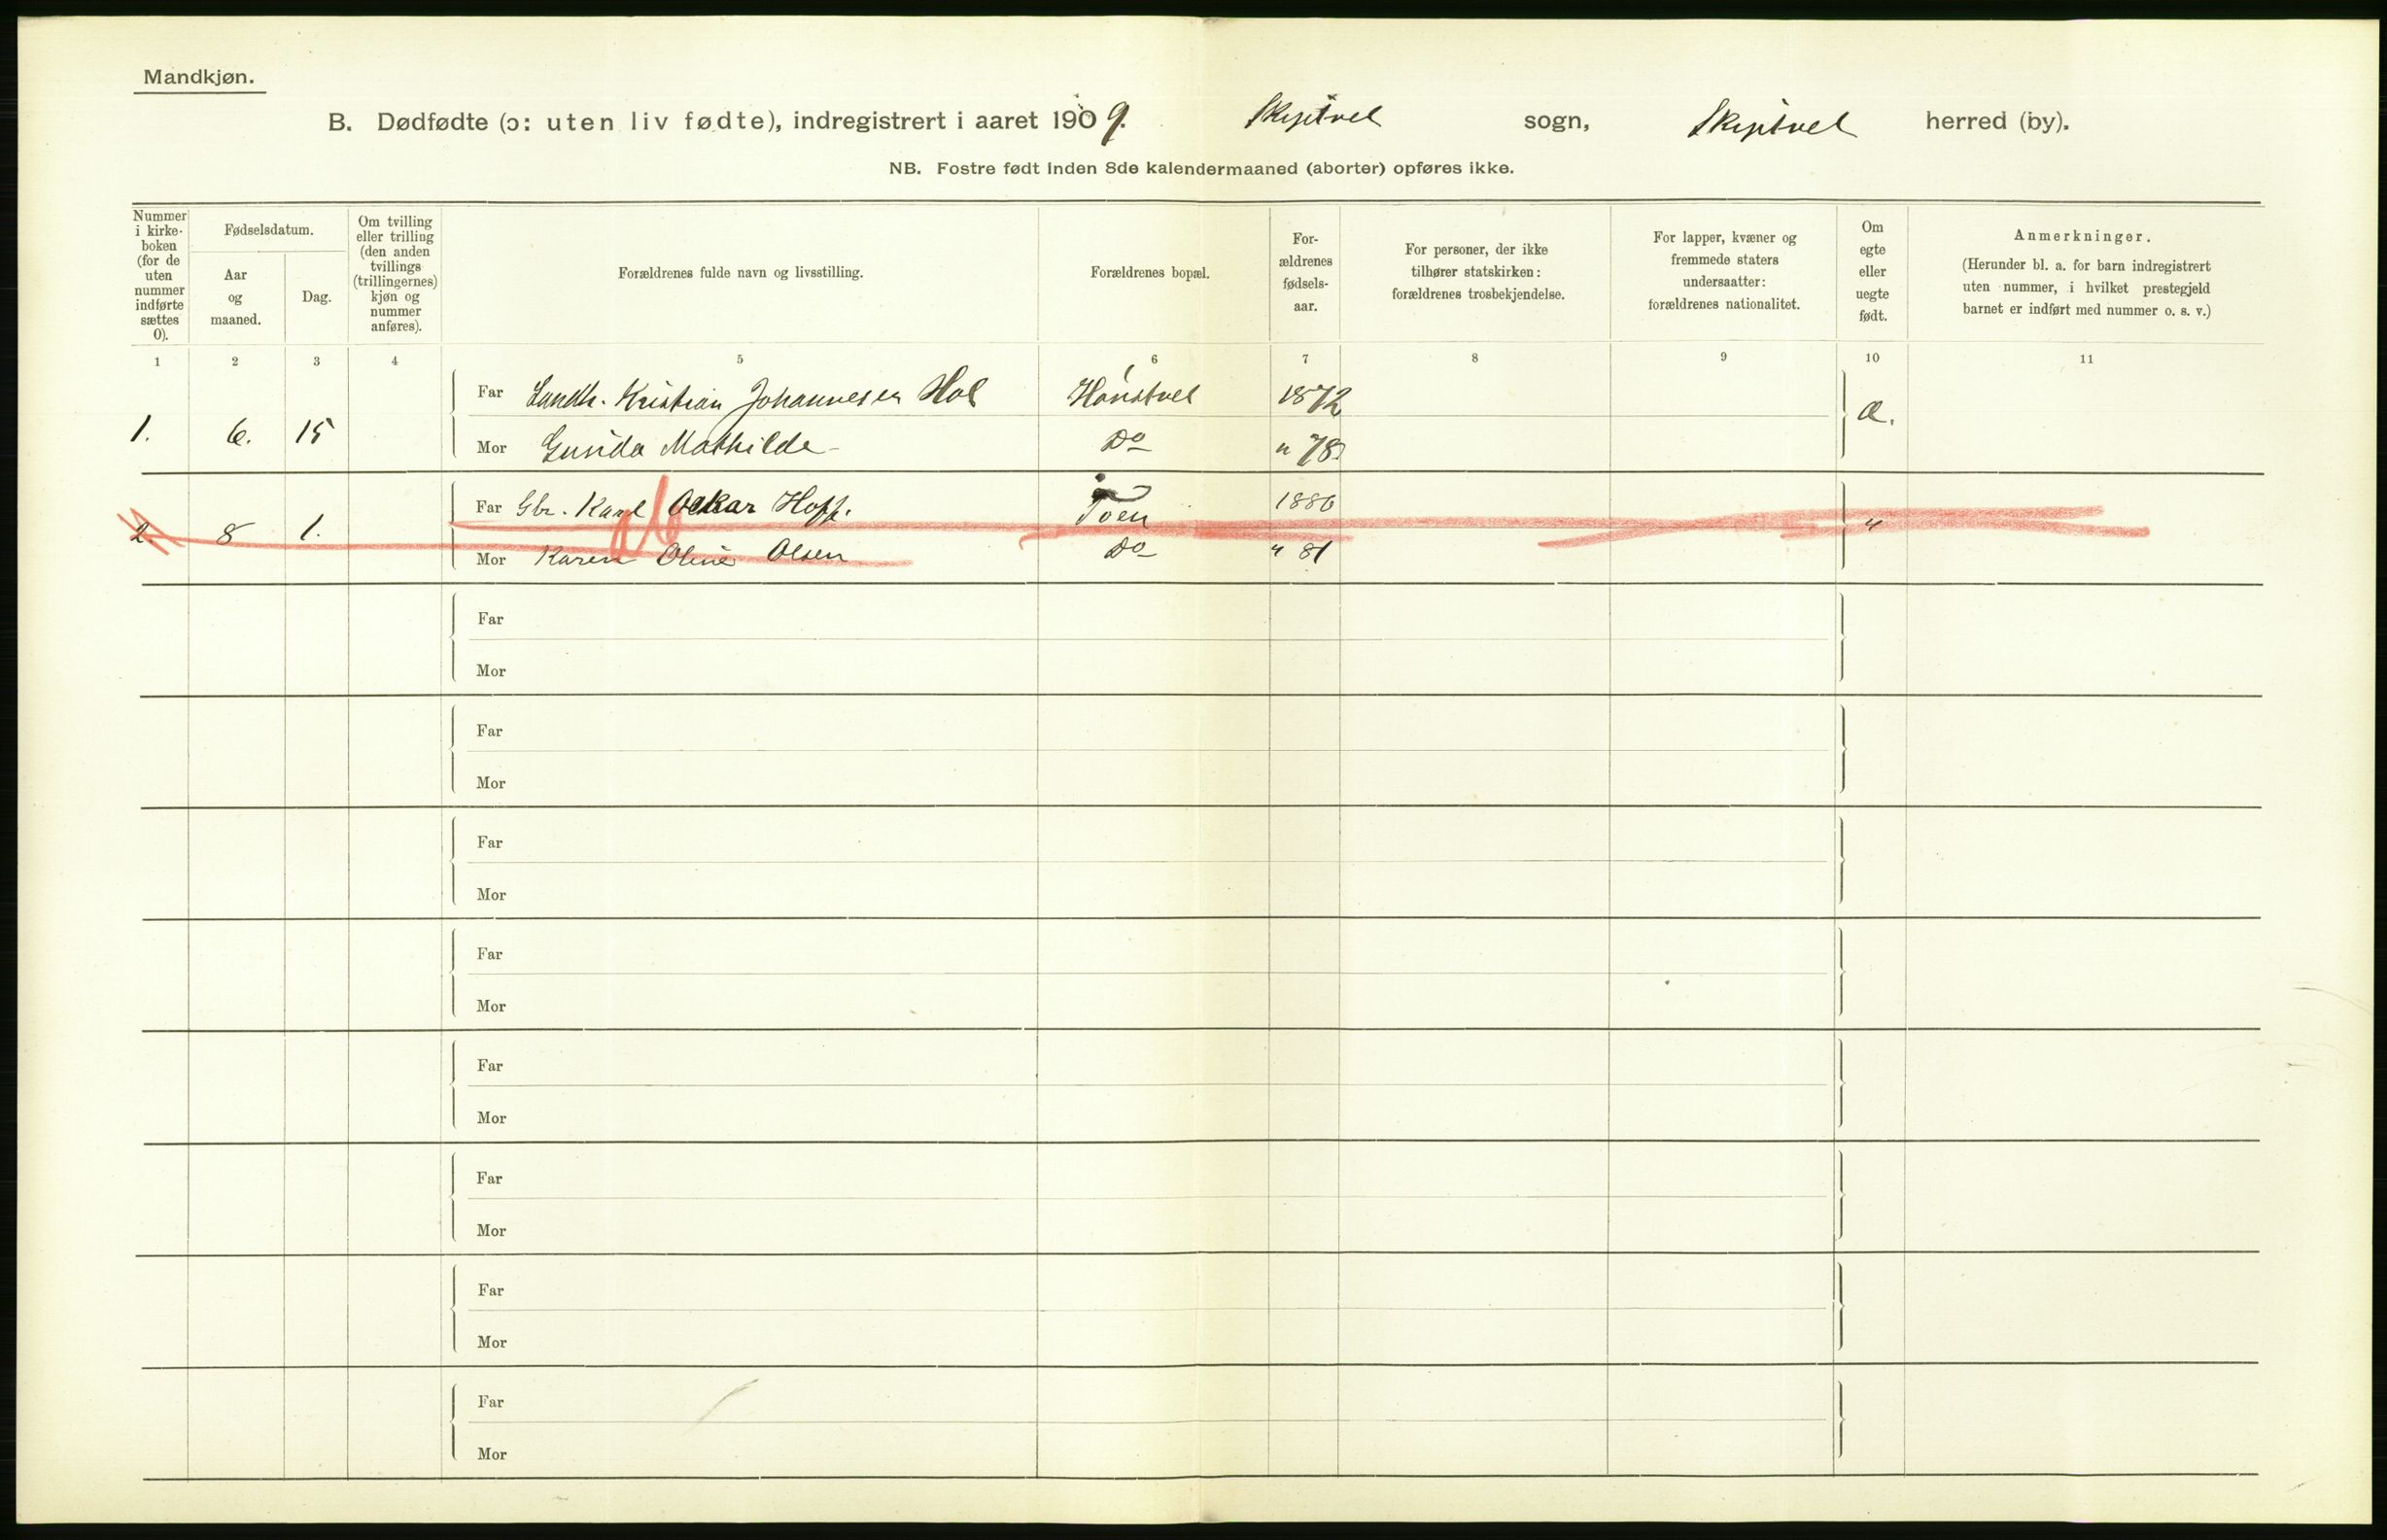 Mandkjøn.
B. Dødfødte (ɔ: uten liv fødte), indregistrert i aaret 1909. Skiptvet sogn, Skiptvet herred (by).
NB. Fostre født inden 8de kalendermaaned (aborter) opføres ikke.
Nummer
i kirke-
boken
(for de
uten
nummer
indførte
sættes
0).
Fødselsdatum.
Aar
og
maaned.
Dag.
Om tvilling
eller trilling
(den anden
tvillings
(trillingernes)
kjøn og
nummer
anføres).
Forældrenes fulde navn og livsstilling.
Forældrenes bopæl.
For-
ældrenes
fødsels-
aar.
For personer, der ikke
tilhører statskirken:
forældrenes trosbekjendelse.
For lapper, kvæner og
fremmede staters
undersaatter:
forældrenes nationalitet.
Om
egte
eller
uegte
født.
Anmerkninger.
(Herunder bl. a. for barn indregistrert
uten nummer, i hvilket prestegjeld
barnet er indført med nummer o. s. v.)
1 2 3 4 5 6 7 8 9 10 11
1. 6. 15
Far Landh. Kristian Johannesen Hol Hønstvet 1872 Æ.
Mor Gunda Mathilde Do " 78
2. 8 1.
Far Gbr. Karl Oskar Hoff. Toen 1880 "
Mor Karen Oline Olsen Do " 81
Far
Mor
Far
Mor
Far
Mor
Far
Mor
Far
Mor
Far
Mor
Far
Mor
Far
Mor